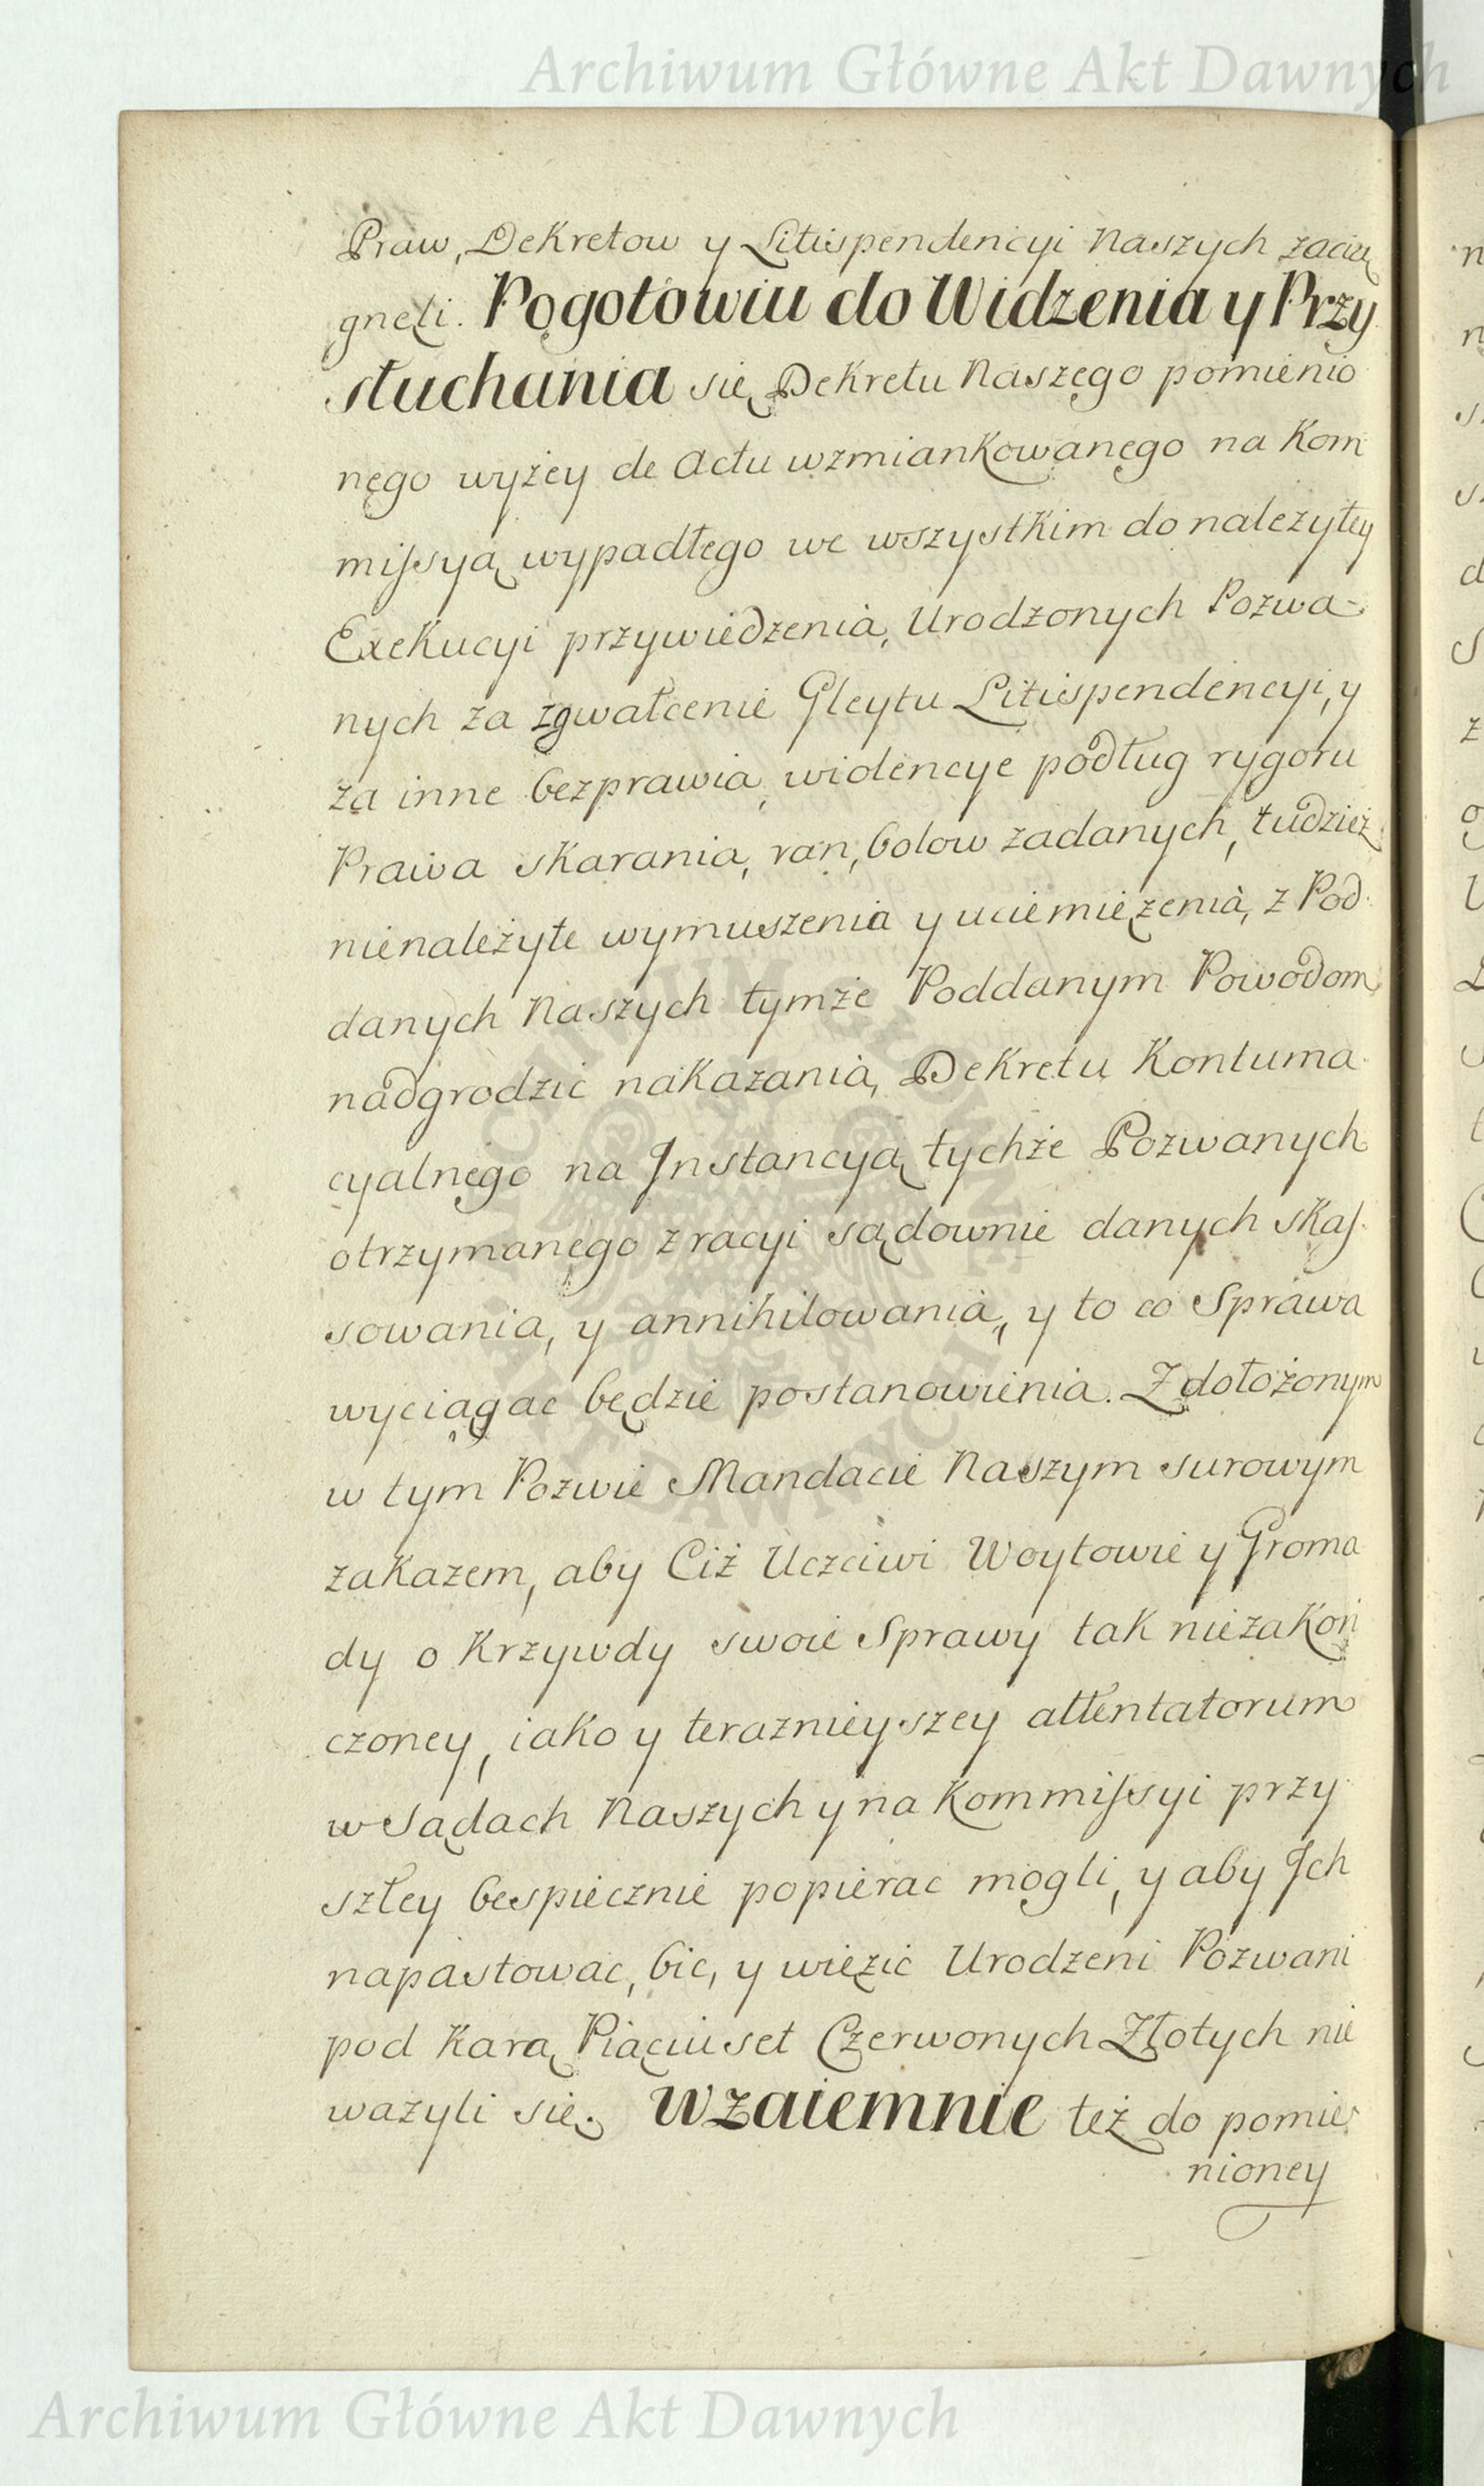 Archiwum Główne Akt Dawnych
Praw, Dekretow y Litispendencyi Naszych zacią
gneli. Pogotowiu do Widzenia y Przy
słuchania się Dekretu Naszego pomienio
nego wyżey de Actu wzmiankowanego na Kom
missyą wypadłego we wszystkim do należytey
Exekucyi przywiedzenia, Urodzonych Pozwa-
nych za zgwałcenie Gleytu Litispendencyi, y
za inne bezprawia, wiolencye podług rygoru
Prawa skarania, ran, bolow zadanych, tudzież
nienależyte wymuszenia y uciemiężenia, z Pod
danych Naszych tymże Poddanym Powodom
nadgrodzic nakazania, Dekretu Kontuma
cyalnego na Jnstancyą tychże Pozwanych
otrzymanego z racyi sądownie danych skas
sowania, y annihilowania, y to co Sprawa
wyciągac będzie postanowienia. Z dołożonym
w tym Pozwie Mandacie Naszym surowym
zakazem, aby Ciż Uczciwi Woytowie y Groma
dy o Krzywdy swoie Sprawy tak niezakoń
czoney, iako y teraznieyszey attentatorum
w Sądach Naszych y na Kommissyi przy
szłey bespiecznie popierac mogli, y aby Jch
napastowac, bic, y więzić Urodzeni Pozwani
pod Karą Piąciuset Czerwonych Złotych nie
ważyli się. Wzaiemnie też do pomie
nioney
ARCHIWUM GŁÓWNE AKT DAWNYCH
Archiwum Główne Akt Dawnych